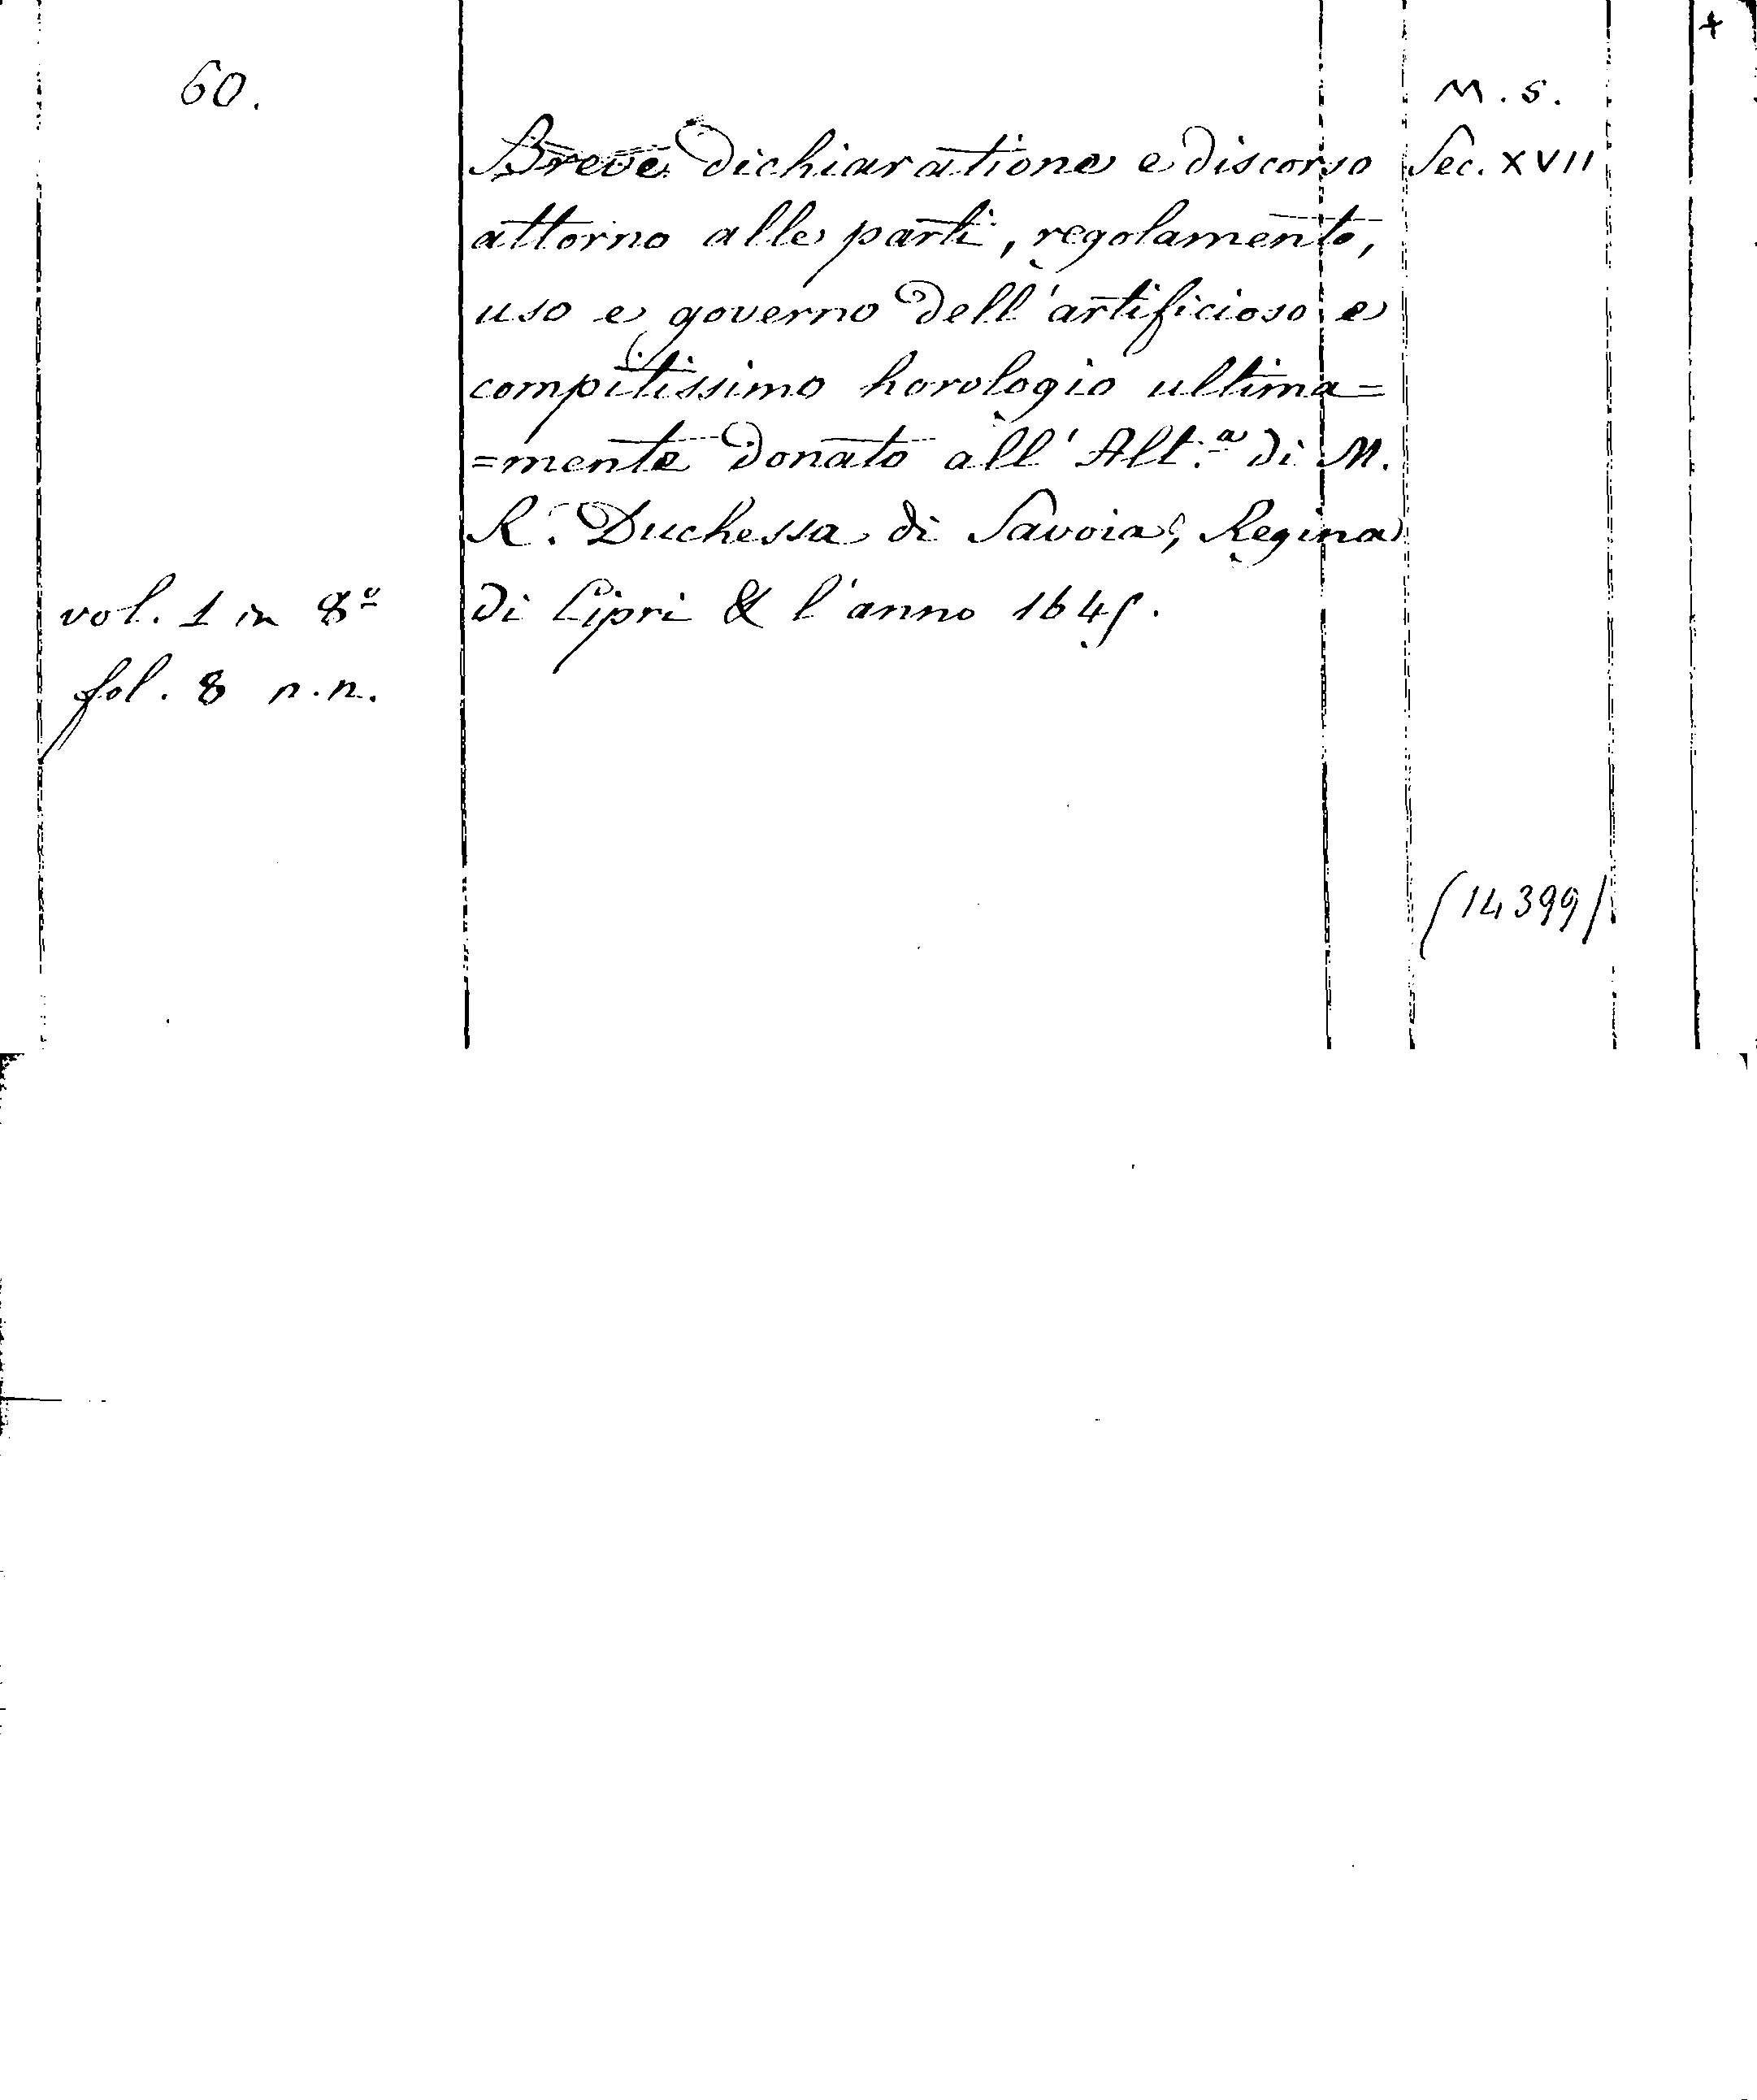 60.
M. S.
Breve dichiaratione e discorso
Sec. XVII
attorno alle parti, regolamento,
uso e governo dell'artificioso e
compitissimo horologio ultima=
=mente donato all'Alt.ª di M.
R. Duchessa di Savoia, Regina
di Cipri & l'anno 1645.
vol. 1 in 8º
fol. 8 n.n.
(14399)